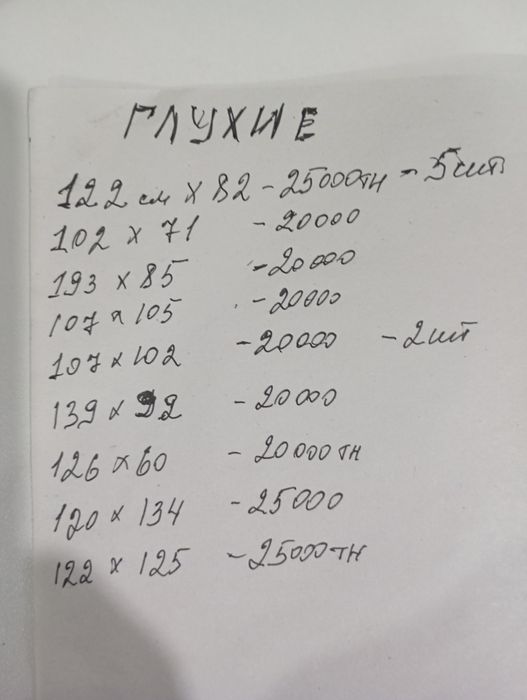 ГЛУХИЕ
122 см x 82 - 25000тн - 5шт
102 x 71 - 20000
193 x 85 - 20000
107 x 105 - 20000
107 x 102 - 20000 - 2шт
139 x 92 - 20000
126 x 60 - 20000 тн
120 x 134 - 25000
122 x 125 - 25000 тн